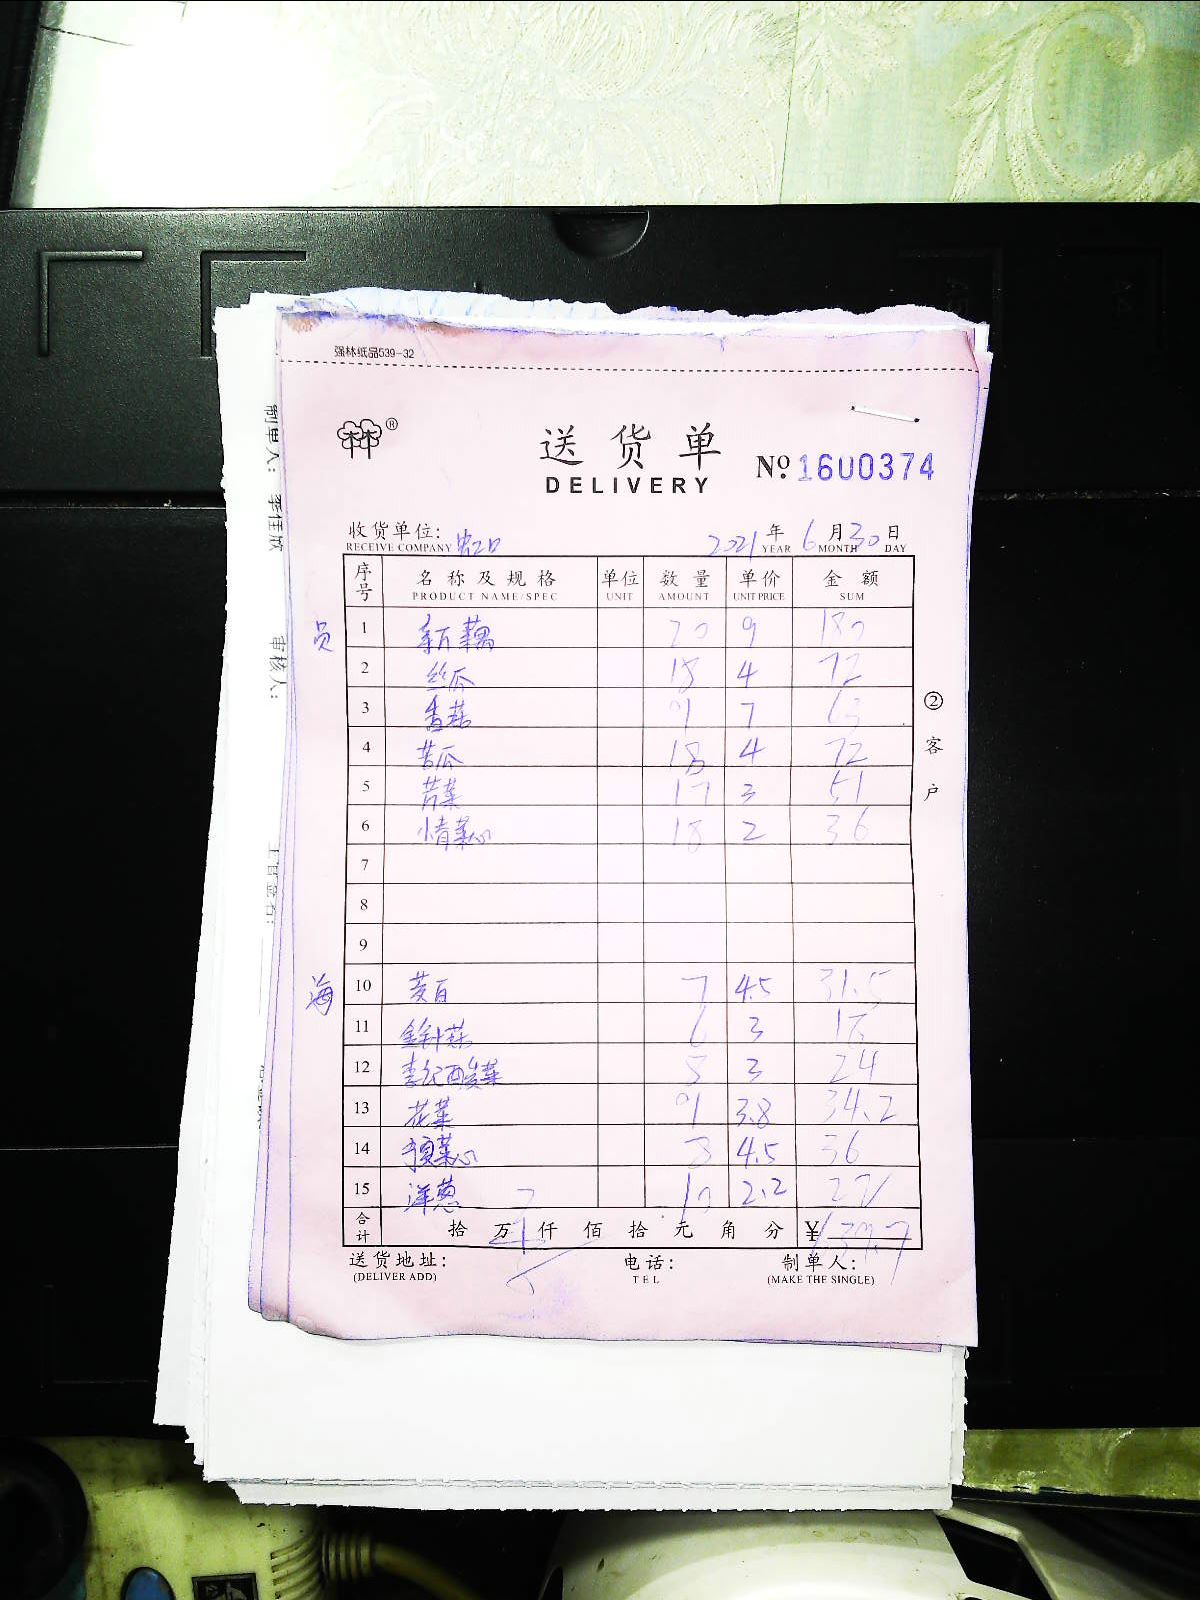 强林纸品539-32
®
送货单
DELIVERY
№ 1600374
收货单位:
2021年6月30日
RECEIVE COMPANY YEAR MONTH DAY
序号 名称及规格 单位 数量 单价 金额
PRODUCT NAME/SPEC UNIT AMOUNT UNIT PRICE SUM
员 1 藕 20 9 180
2 丝瓜 18 4 72
3 香菇 9 7 63
4 苦瓜 18 4 72
5 芹菜 17 3 51
6 菜心 18 2 36
7
8
9
海 10 茭白 7 4.5 31.5
11 金针菇 6 3 18
12 李记酸菜 8 3 24
13 花菜 9 3.8 34.2
14 菜心 8 4.5 36
15 洋葱 10 2.2 22
合计 拾万仟佰拾元角分 ¥ 639.7
送货地址: 电话: 制单人:
(DELIVER ADD) TEL (MAKE THE SINGLE)
②客户
制单人:
审核人: